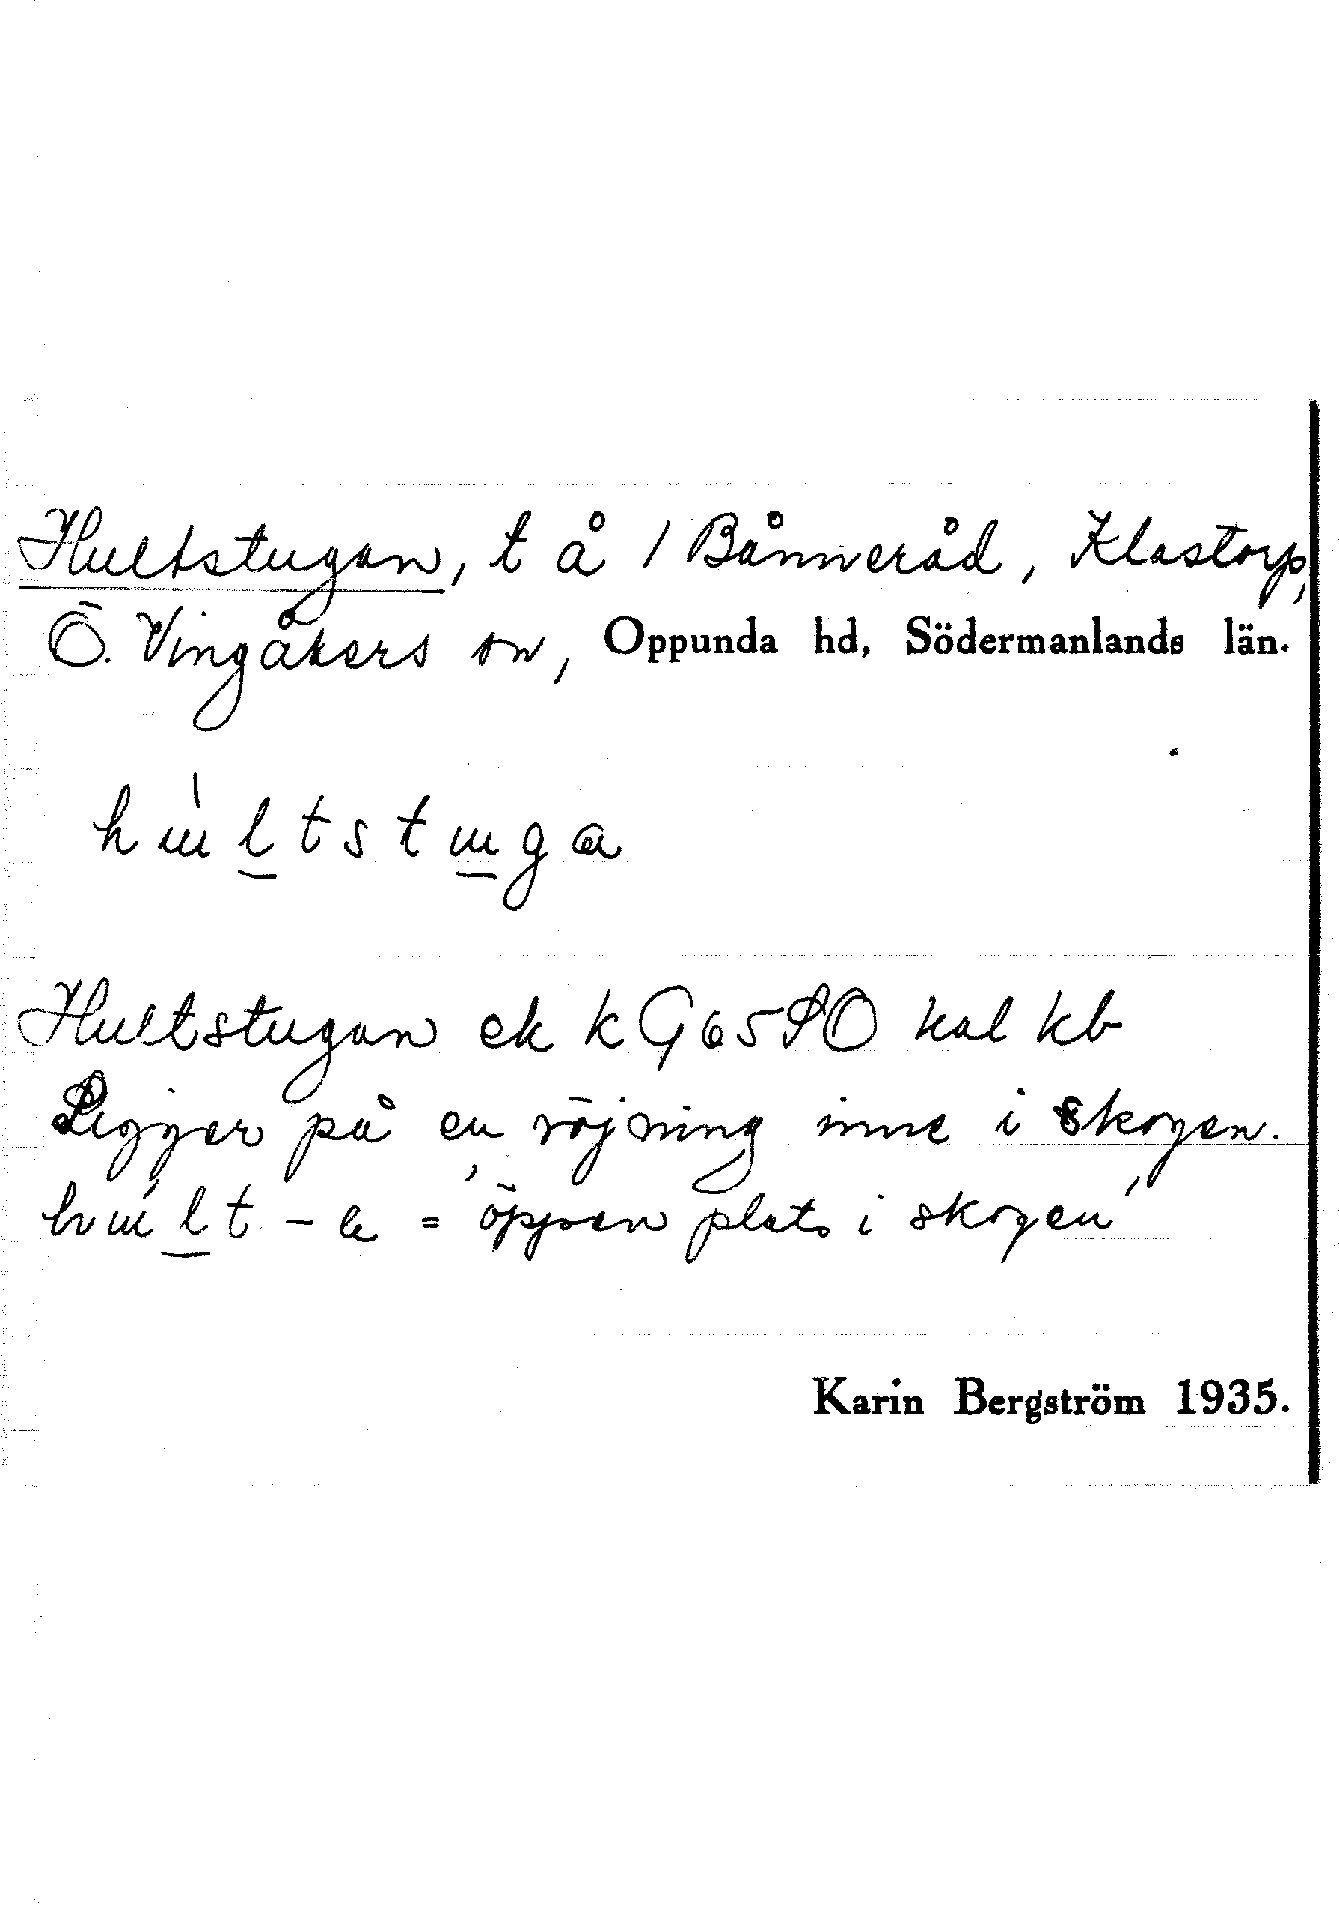 Hultstugan, t å / Bånneråd, Klastorp,
Ö. Vingåkers sn, Oppunda hd, Södermanlands län.
hultstuga
Hultstugan ek k G65SO kal kb
Ligger på en röjning inne i skogen.
hult - = 'öppen plats i skogen'
Karin Bergström 1935.